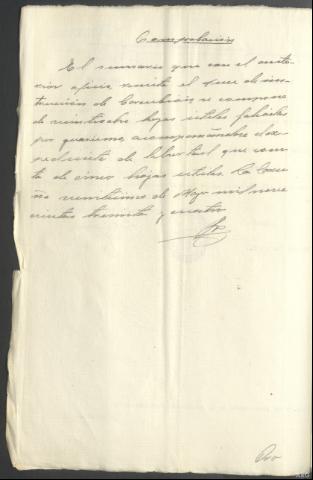 Comprobación
El sumario que con el ante-
rior oficio remite el Juez de ins-
trucción de Corcubión se compone
de veintiocho hojas utiles foliadas
por guarismo, acompañandole el ex-
pediente de libertad que cons-
ta de cinco hojas utiles. La Coru-
ña veintiuno de Mayo mil nove
cientos treinta y cuatro